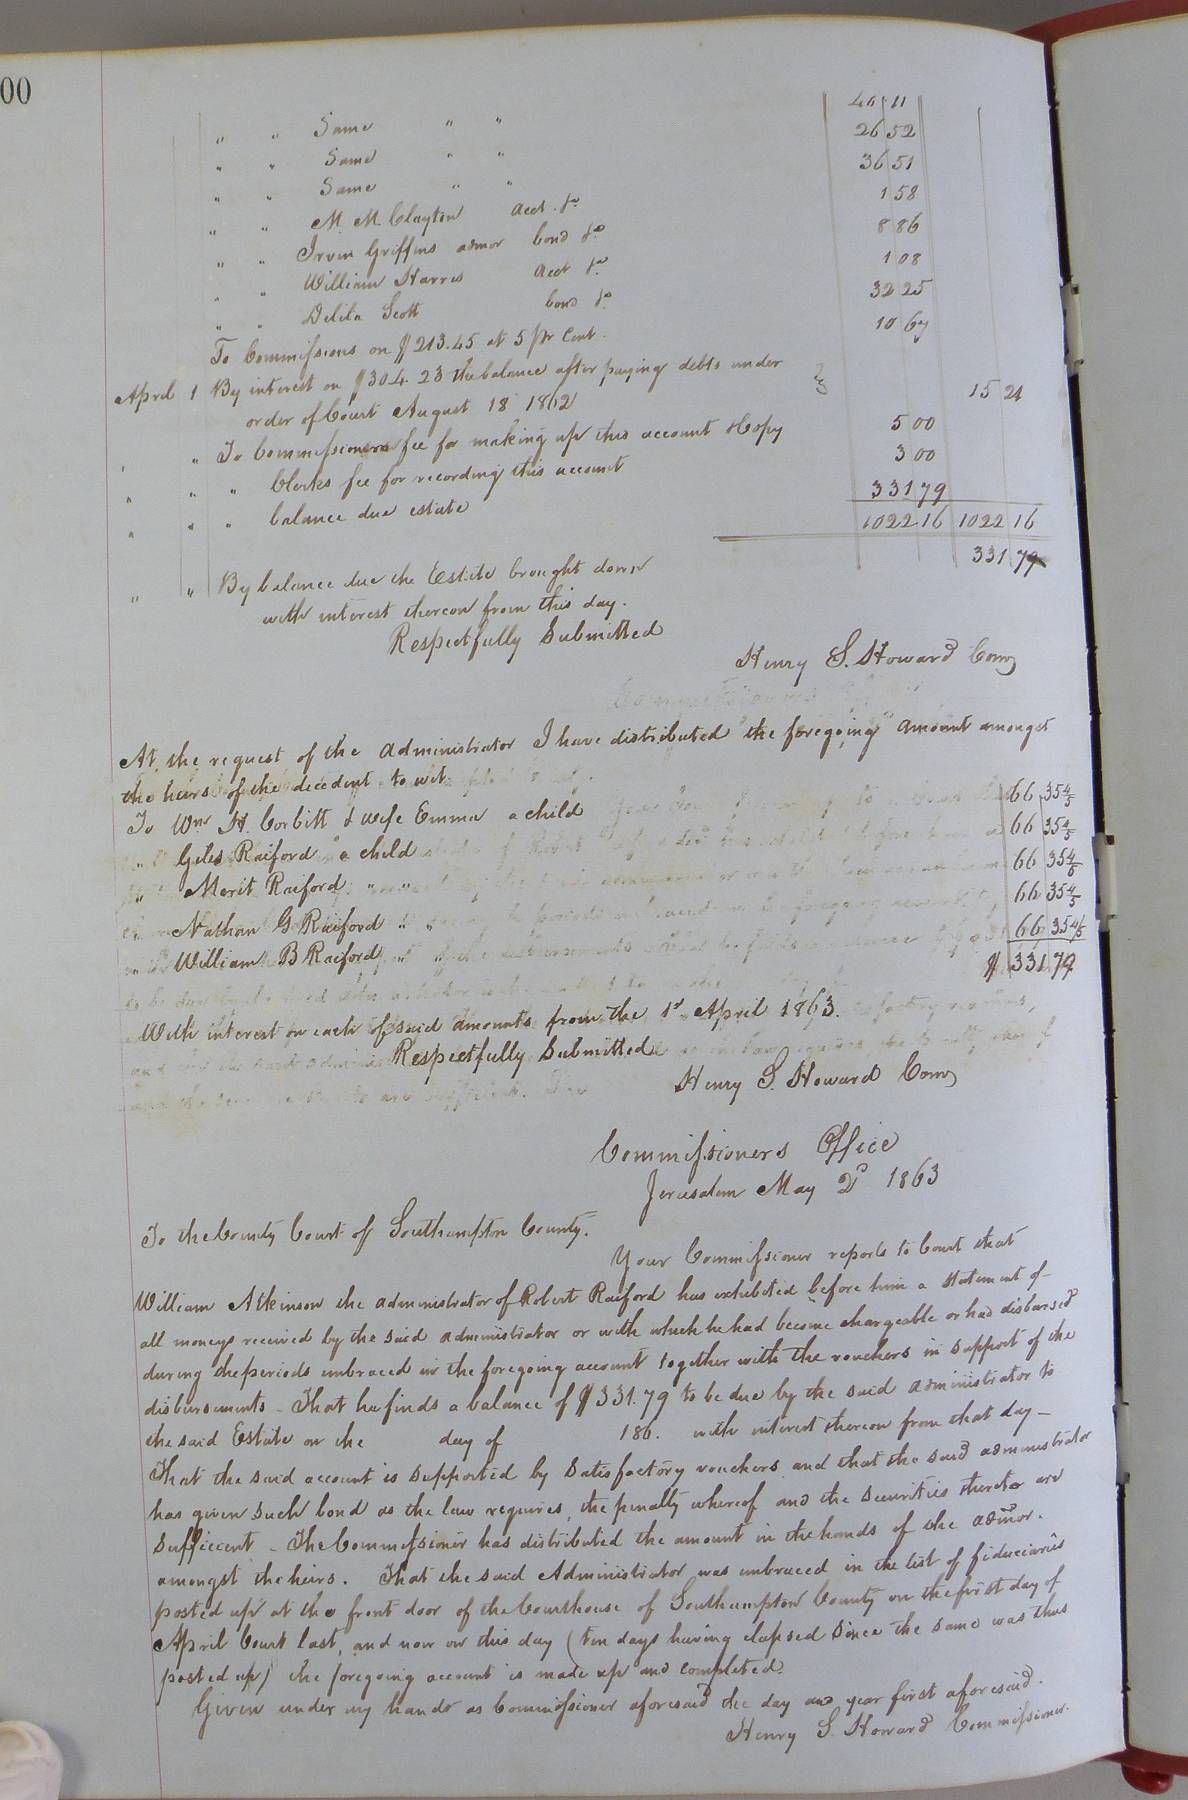 00
40 11
" " Same " " 26 52
" " Same " " 36 51
" " Same " " 1 58
" " M. M. Clayton acct. do 8 86
" " Irvin Griffins admor bond do 1 08
" " William Harris acct do 32 25
" " Delila Scott bond do 10 67
To Commissions on $213.45 at 5 pr Cent.
April 1 By interest on $304.23 the balance after paying debts under
order of Court August 18 1862 15 21
" " To Commissioners fee for making up this account & Copy 5 00
" " " Clerks fee for recording this account 3 00
" " " balance due estate 331 79
1022 16 1022 16
" " By balance due the Estate brought down 331 79
with interest thereon from this day.
Respectfully Submitted
Henry S. Howard Comr
At the request of the administrator I have distributed the foregoing amount amongst
the heirs of the decedent to wit
To Wm H. Corbitt & wife Emma a child 66 35 4/5
" Giles Raiford a child 66 35 4/5
" Merit Raiford " " 66 35 4/5
" Nathan G Raiford " " 66 35 4/5
" William B Raiford " " 66 35 4/5
$ 331 79
With interest on each of said amounts from the 1st April 1863.
Respectfully Submitted
Henry S. Howard Comr
Commissioners Office
Jerusalem May 2d 1863
To the County Court of Southampton County.
Your Commissioner reports to Court that
William Atkinson the administrator of Robert Raiford has exhibited before him a statement of
all moneys received by the said administrator or with which he had become chargeable or had disbursed
during the periods embraced in the foregoing account together with the vouchers in support of the
disbursements – That he finds a balance of $331.79 to be due by the said administrator to
the said Estate on the day of 186. with interest thereon from that day –
That the said account is supported by satisfactory vouchers and that the said administrator
has given such bond as the law requires, the penalty whereof and the securities thereto are
sufficient – The Commissioner has distributed the amount in the hands of the admor.
amongst the heirs. That the said Administrator was embraced in the list of fiduciaries
posted up at the front door of the Courthouse of Southampton County on the first day of
April Court last, and now on this day (ten days having elapsed since the same was thus
posted up) the foregoing account is made up and completed.
Given under my hand as Commissioner aforesaid the day and year first aforesaid.
Henry S. Howard Commissioner.